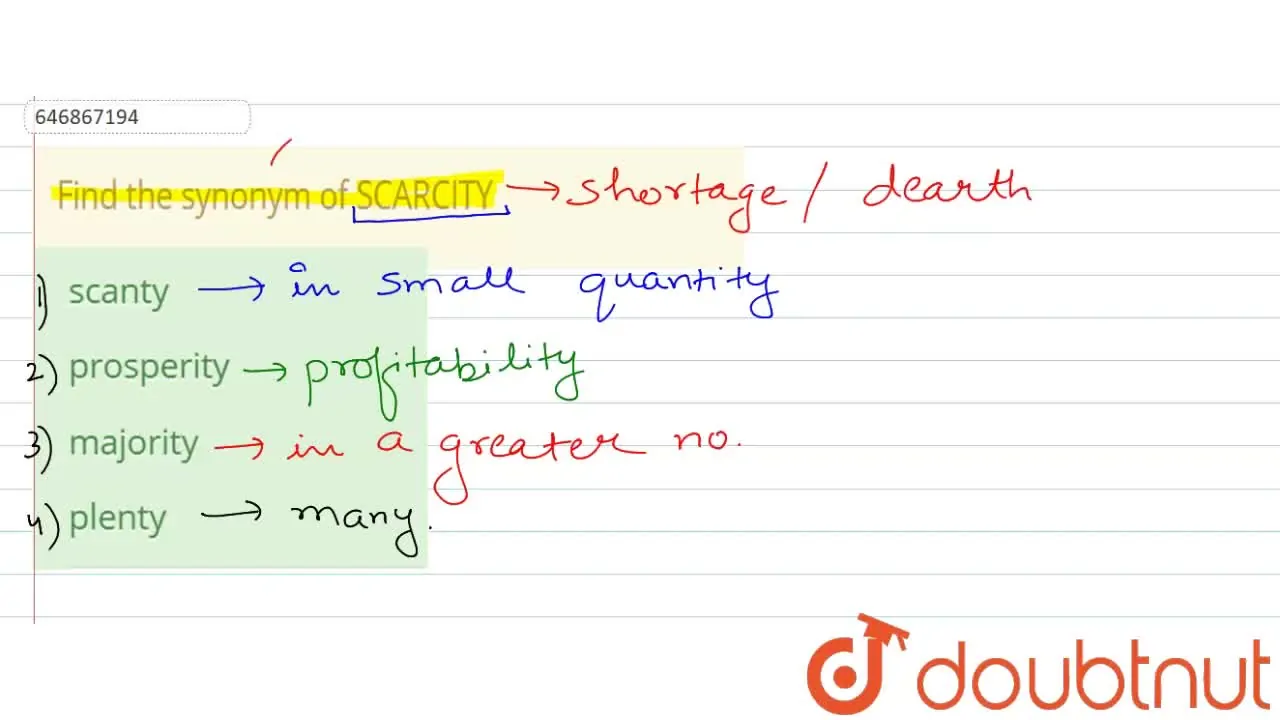 646867194
Find the synonym of SCARCITY → shortage / dearth
1) scanty → in small quantity
2) prosperity → profitability
3) majority → in a greater no.
4) plenty → many.
doubtnut